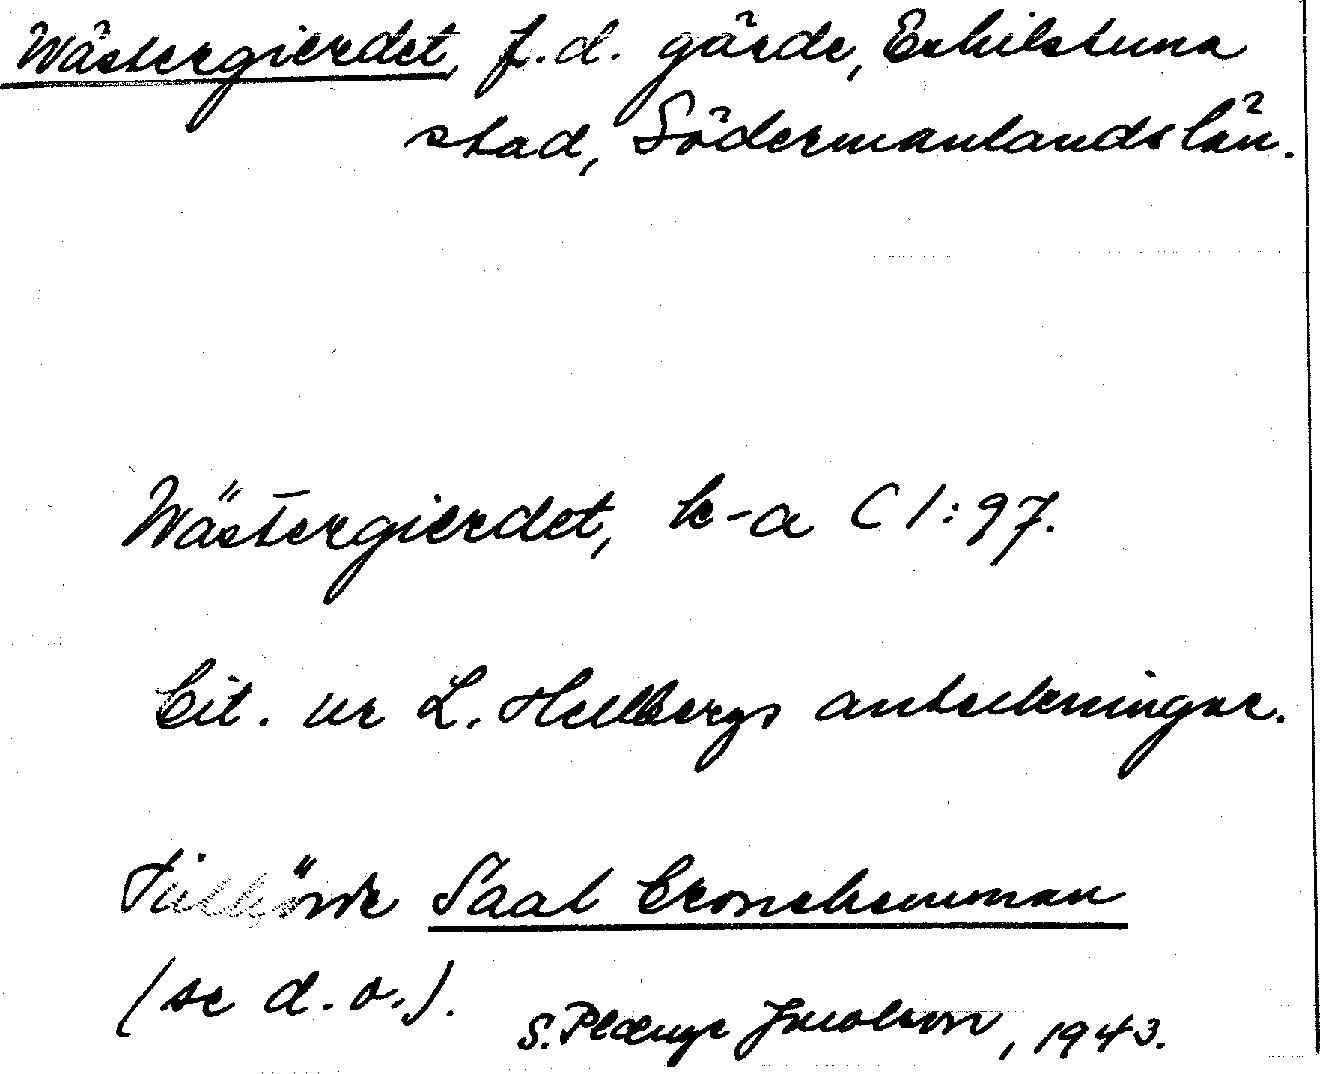 Wästergierdet, f.d. gärde, Eskilstuna
stad, Södermanlands län.
Wästergierdet, k-a C 1:97.
Cit. ur L. Hellbergs anteckningar.
Tillhörde Saal Cronehemman
(se d.o.).
S. Plænge Jacobson, 1943.